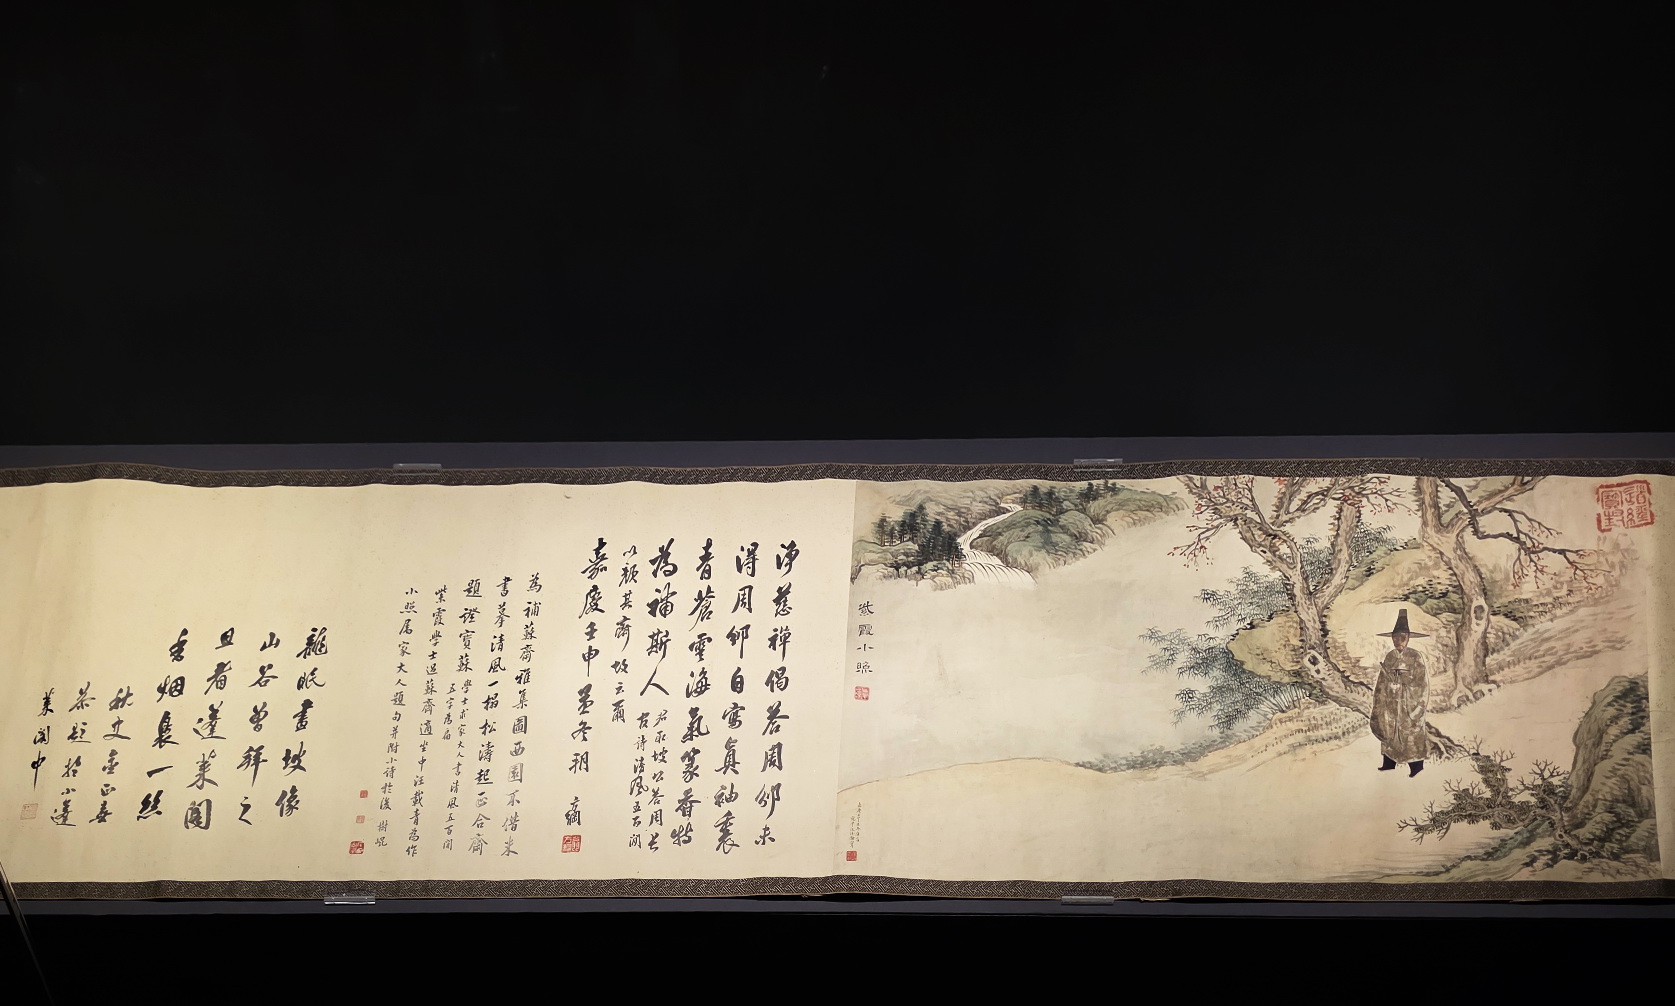 紫霞小照
淨慈禪偈荅周邠未
得周邠自寫真袖裏
青蒼雲海氣篆香特
為補斯人
君取坡公荅周長
官詩清風五百間
以顏其齋故云爾
嘉慶壬申孟冬朔
方綱
為補蘇齋雅集圖西園不借米
書摹清風一榻松濤起正合齋
題證寶蘇
學士求家大人書清風五百間
五字為扁
紫霞學士過蘇齋適坐中汪載青為作
小照屬家大人題句并附小詩於後 樹崐
龍眠畫坡像
山谷曾拜之
且看蓬萊閣
香烟裊一絲
秋史金正喜
恭題於小蓬
萊閣中